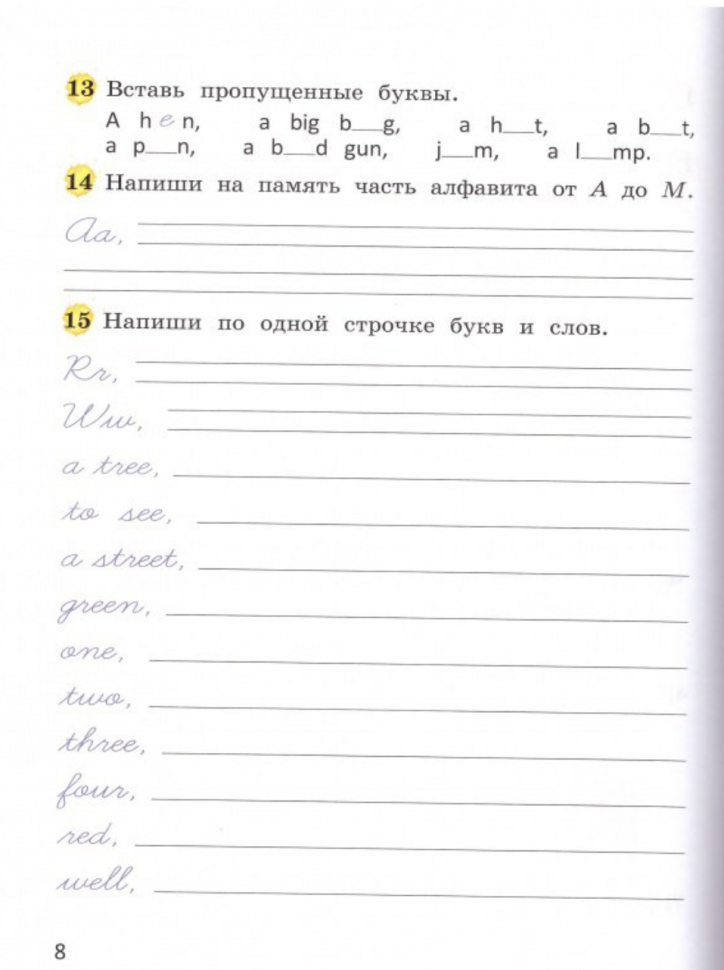 13 Вставь пропущенные буквы.
A h e n, a big b__g, a h__t, a b__t,
a p__n, a b__d gun, j__m, a l__mp.
14 Напиши на память часть алфавита от A до M.
Aa,
15 Напиши по одной строчке букв и слов.
Rr,
Ww,
a tree,
to see,
a street,
green,
one,
two,
three,
four,
red,
well,
8